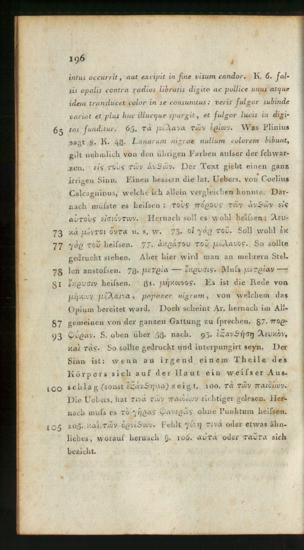 196
intus occurrit, aut excipit in fine visum candor. K. 6. fal-
sis opalis contra radios libratis digito ac pollice unus atque
idem tranducet color in se consumtus: veris fulgor subinde
variat et plus huc illucque spargit, et fulgor lucis in digi-
65 tos funditur. 65. τὰ μέλανα τῶν ἐρίων. Was Plinius
sagt 8. K. 48. Lanarum nigrae nullum colorem bibunt,
gilt nehmlich von den übrigen Farben ausser der schwar-
zen. εἰς τοὺς τῶν ἀνθῶν. Der Text giebt einen ganz
irrigen Sinn. Einen bessern die lat. Uebers. von Coelius
Calcagninus, welche ich allein vergleichen konnte. Dar-
nach müfste es heifsen: τοὺς πόρους τῶν ἀνθῶν εἰς
αὐτοὺς εἰσιόντων. Hernach soll es wohl heifsen: λευ-
73 κὰ μόντοι ὄντα u. s. w. 73. οἱ γάρ τοῦ. Soll wohl ἐκ
77 γάρ τοῦ heifsen. 77. ἀκράτου τοῦ μέλανος. So sollte
gedruckt stehen. Aber hier wird man an mehrern Stel-
78 len anstofsen. 78. μετρία — ἔκρυσις. Mufs μετρίαν —
81 ἔκρυσιν heifsen. 81. μήκωνος. Es ist die Rede von
μήκων μέλαινα, papaver nigrum, von welchem das
Opium bereitet ward. Doch scheint Ar. hernach im All-
87 gemeinen von der ganzen Gattung zu sprechen. 87. πορ-
93 φύραν. S. oben über 58. nach. 93. ἐξανθήσῃ λευκὸν,
καὶ τάς. So sollte gedruckt und interpungirt seyn. Der
Sinn ist: wenn an irgend einem Theile des
Körpers sich auf der Haut ein weifser Aus-
100 schlag (sonst ἐξάνθημα) zeigt. 100. τὰ τῶν παιδίων.
Die Uebers. hat τινὰ τῶν παιδίων richtiger gelesen. Her-
nach mufs es τὸ γῆρας φανερῶς ohne Punktum heifsen.
105 105. καὶ τῶν ὀρνίθων. Fehlt γένη τινὰ oder etwas ähn-
liches, worauf hernach §. 106. αὐτὰ oder ταῦτα sich
bezieht.